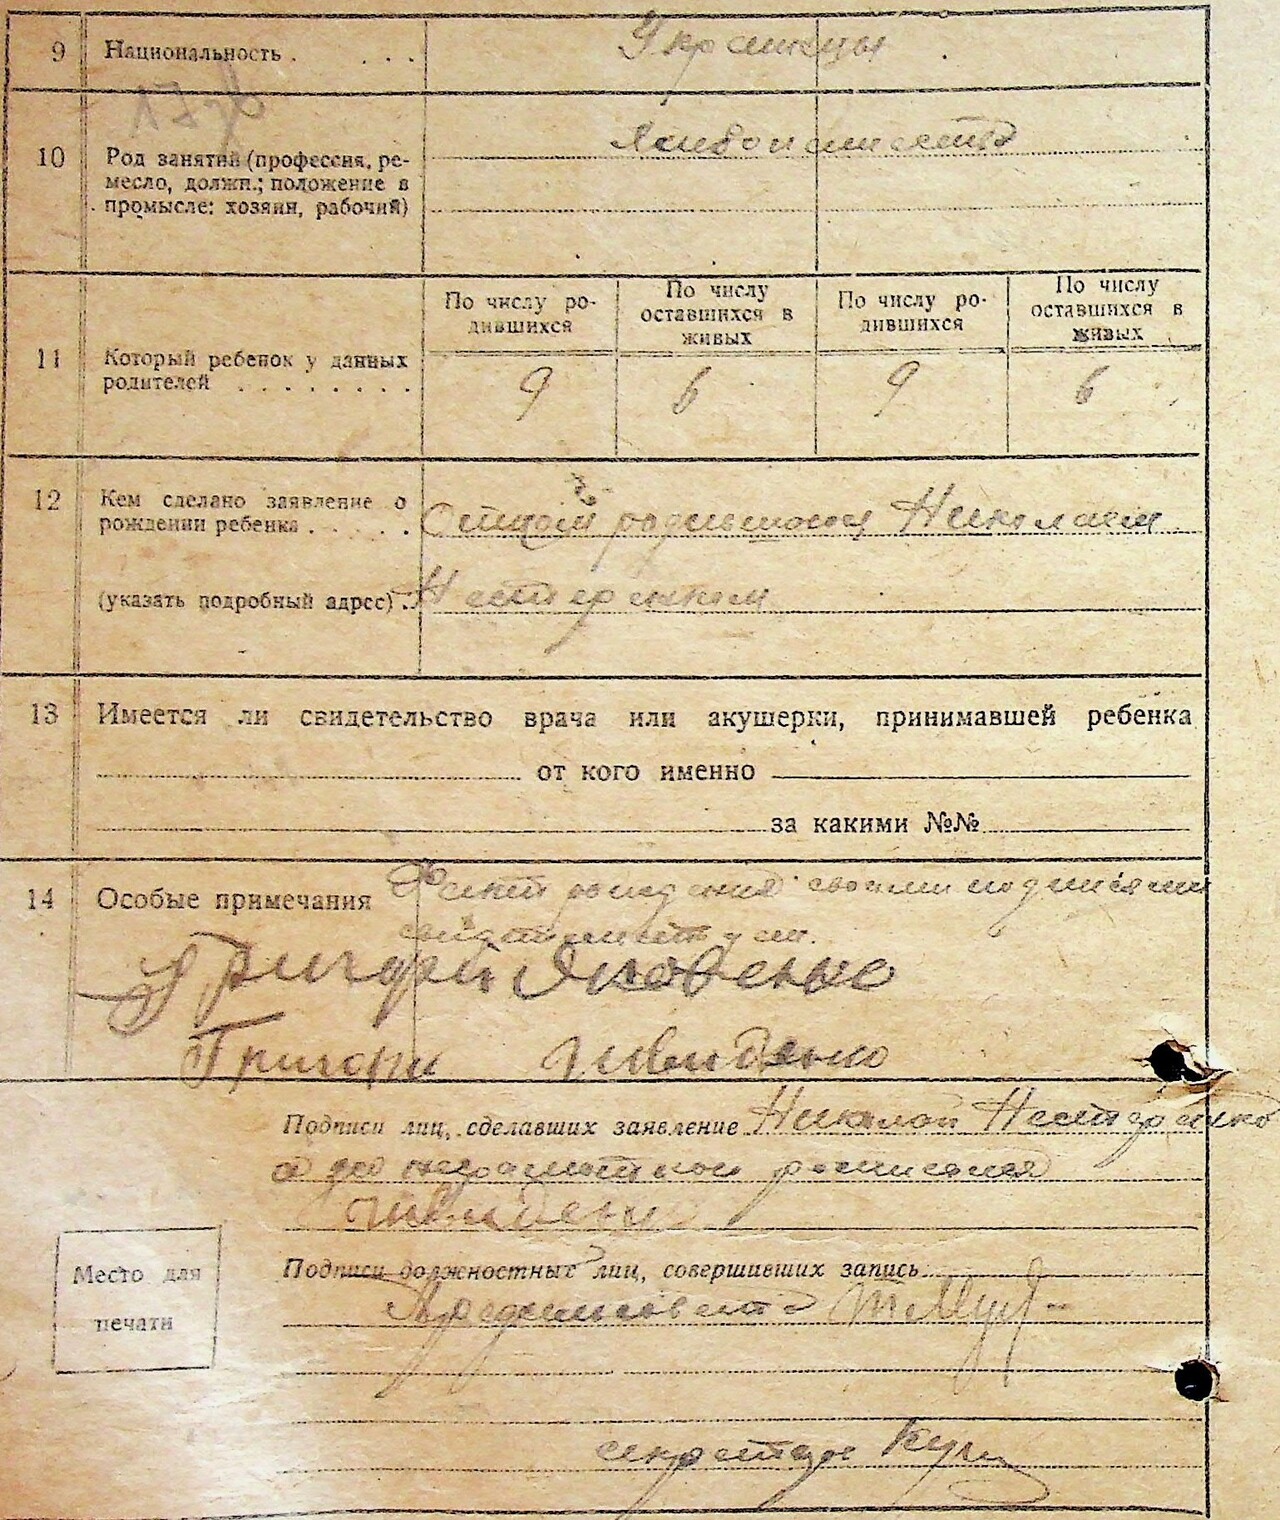 9 Национальность . . . . Украинцы
10 Род занятий (профессия, ре-
месло, должн.; положение в
промысле: хозяин, рабочий)
Хлебопашество
11 Который ребенок у данных
родителей . . . . . . . .
По числу ро-
дившихся
По числу
оставшихся в
живых
По числу ро-
дившихся
По числу
оставшихся в
живых
9 6 9 6
12 Кем сделано заявление о
рождении ребенка . . . . . Отцом родившагося Николаем
(указать подробный адрес) . Нестеренком
13 Имеется ли свидетельство врача или акушерки, принимавшей ребенка
от кого именно
за какими №№
14 Особые примечания Факт рождения своими подписями
свидетельствуем.
Григорий Яковенко
Григори Швиденко
Подписи лиц, сделавших заявление Николай Нестеренко
а за неграмотного росписался
Швиденко
Место для
печати
Подписи должностных лиц, совершивших запись
Председ
секретарь